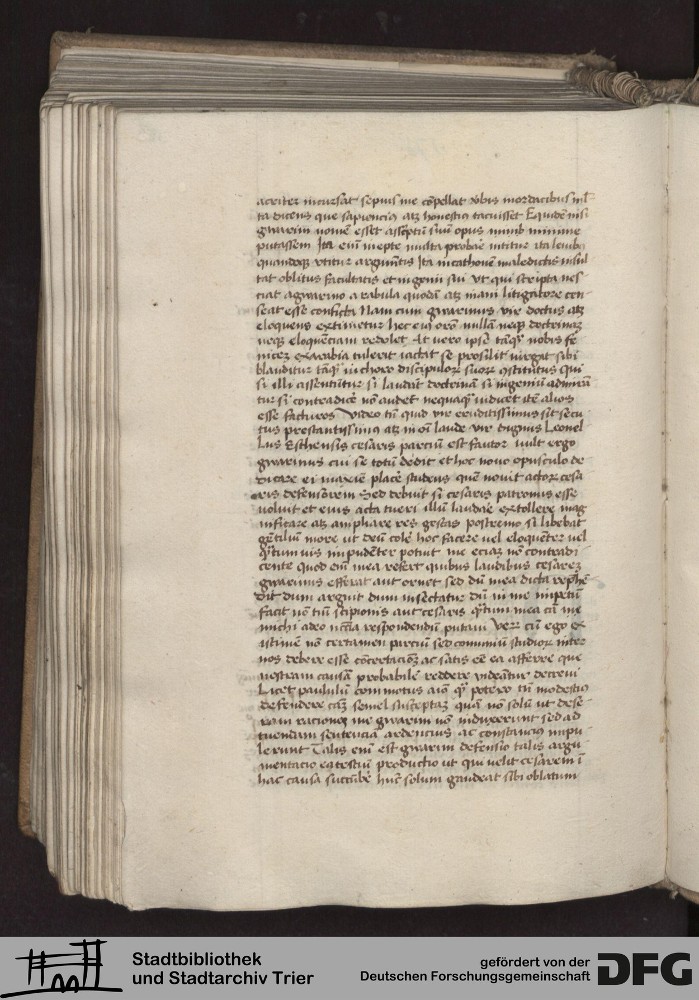 acriter incursat sepius me cōpellat v̄bis mordacibus ml̄
ta dicens que sapiencius atqꝫ honestius tacuisset Equidē nisi
gwarini nomē esset asc̄ptū suū opus minime
putassem Ita eim̄ inepte multa probare nititur ita leuibꝰ
quandoqꝫ vtitur argum̄tis Ita in cathonē maledictis insul
tat oblitus facultatis et ingenii sui vt qui scripta nes
ciat a gwarino a rabula quodā atqꝫ inani litigatore cen
seat esse conficta Nam cum gwarinus vir doctus atqꝫ
eloquens extimetur hec eiꝰ orō nullā neqꝫ doctrinaꝫ
neqꝫ eloquēciam redolet At vero ipse tāqꝫ nobis fe
nicez ex arabia tulerit iactat se prosilit surgit sibi
blanditur tāqꝫ in choro discipulorꝫ suorꝫ 9stitutus qui
si illi assentiūtur si laudāt doctrinā si ingeniū admirā
tur si contradicē nō audēt nequaqꝫ iudicet idē alios
esse facturos Video tū quid vir eruditissimus sit secu
tus prestantissimꝰ atqꝫ in oī laude vir dignus Leonel
lus Esthensis cesaris parciū est fautor vult ergo
gwarinus cui se totū dedit et hoc nouo opusculo de
dicare ei maxīe placē studens quē nouit actorꝫ cesa
ris defensorem Sed debuit si cesaris patronus esse
voluit et eius acta tueri illū laudare extollere mag
nificare atqꝫ ampliare res gestas postremo si libebat
gētiliū more ut deū colē hoc facere vel eloquēter vel
q̄tum vis inpudēter potuit me eciaꝫ nō contradi
cente quod eim̄ mea refert quibus laudibus cesarez
gwarinus efferat aut ornet sed dū mea dicta rephē
dit dum arguit dum insectatur dū in me impetū
facit nō tm̄ scipionis aut cesaris q̄tum mea cā me
michi adeo nccīa respondendū putaui Verꝫ cū ego ex
istimē nō certamen parciū sed communiū studiorꝫ inter
nos debere esse cōcertacōꝫ ac satis eē ea afferre que
nostram causā probabilē reddere videātur decreui
Licet paululū commotus aīo qꝫ potero tū modestiꝰ
defendere cāꝫ semel susceptaꝫ quā nō solū ut dese
ram racionē me gwarini nō induxerunt sed ad
tuendam sentenciā ardencius ac constancius impu
lerunt Talis eim̄ est gwarini defensio talis argu
mentacio ea testiū productio ut qui velit cesarem ī
hac causa succūbē huic solum gaudeat sibi oblatum
Stadtbibliothek
und Stadtarchiv Trier
gefördert von der
Deutschen Forschungsgemeinschaft
DFG